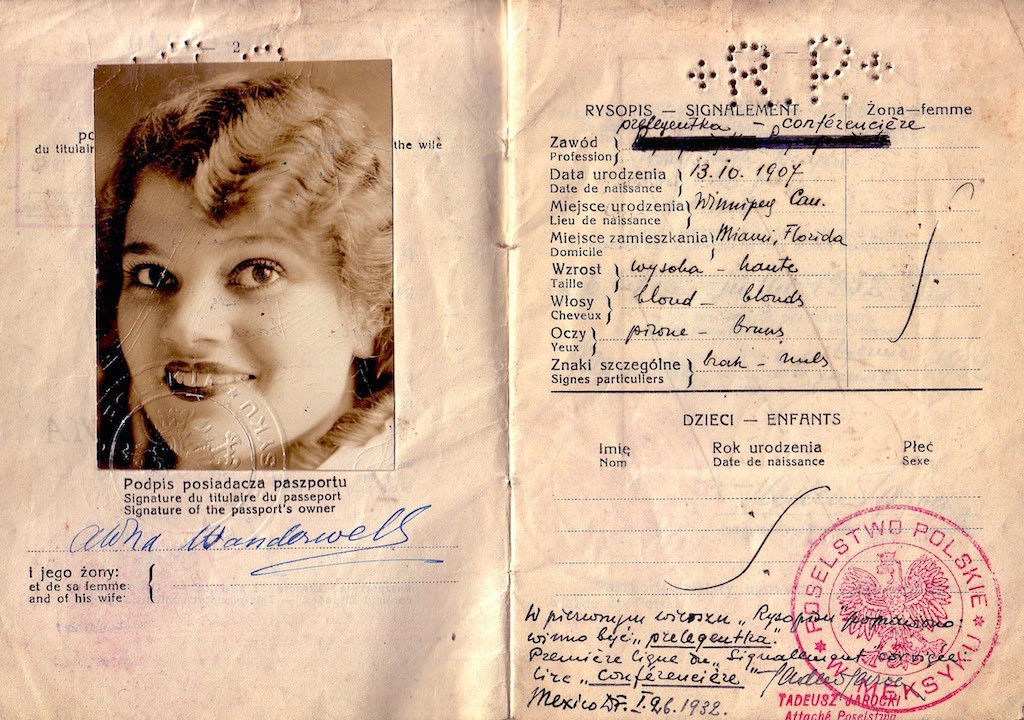 — 2 —
du titulair
the wife
Podpis posiadacza paszportu
Signature du titulaire du passeport
Signature of the passport's owner
Aloha Wanderwell
I jego żony:
et de sa femme:
and of his wife:
+R.P.+
RYSOPIS — SIGNALEMENT Żona—femme
prelegentka – conférencière
Zawód
Profession
Data urodzenia 13.10.1907
Date de naissance
Miejsce urodzenia Winnipeg Can.
Lieu de naissance
Miejsce zamieszkania Miami, Florida
Domicile
Wzrost wysoka – haute
Taille
Włosy blond – blonds
Cheveux
Oczy piwne – bruns
Yeux
Znaki szczególne brak – nuls
Signes particuliers
DZIECI — ENFANTS
Imię Rok urodzenia Płeć
Nom Date de naissance Sexe
POSELSTWO POLSKIE
W MEKSYKU
W pierwszym wierszu „Rysopisu” poprawiono:
winno być „prelegentka”
Première ligne du „Signalement” corrigée:
lire „conférencière”
Mexico DF. I.26.1932.
TADEUSZ JAROCKI
Attaché Poselstwa